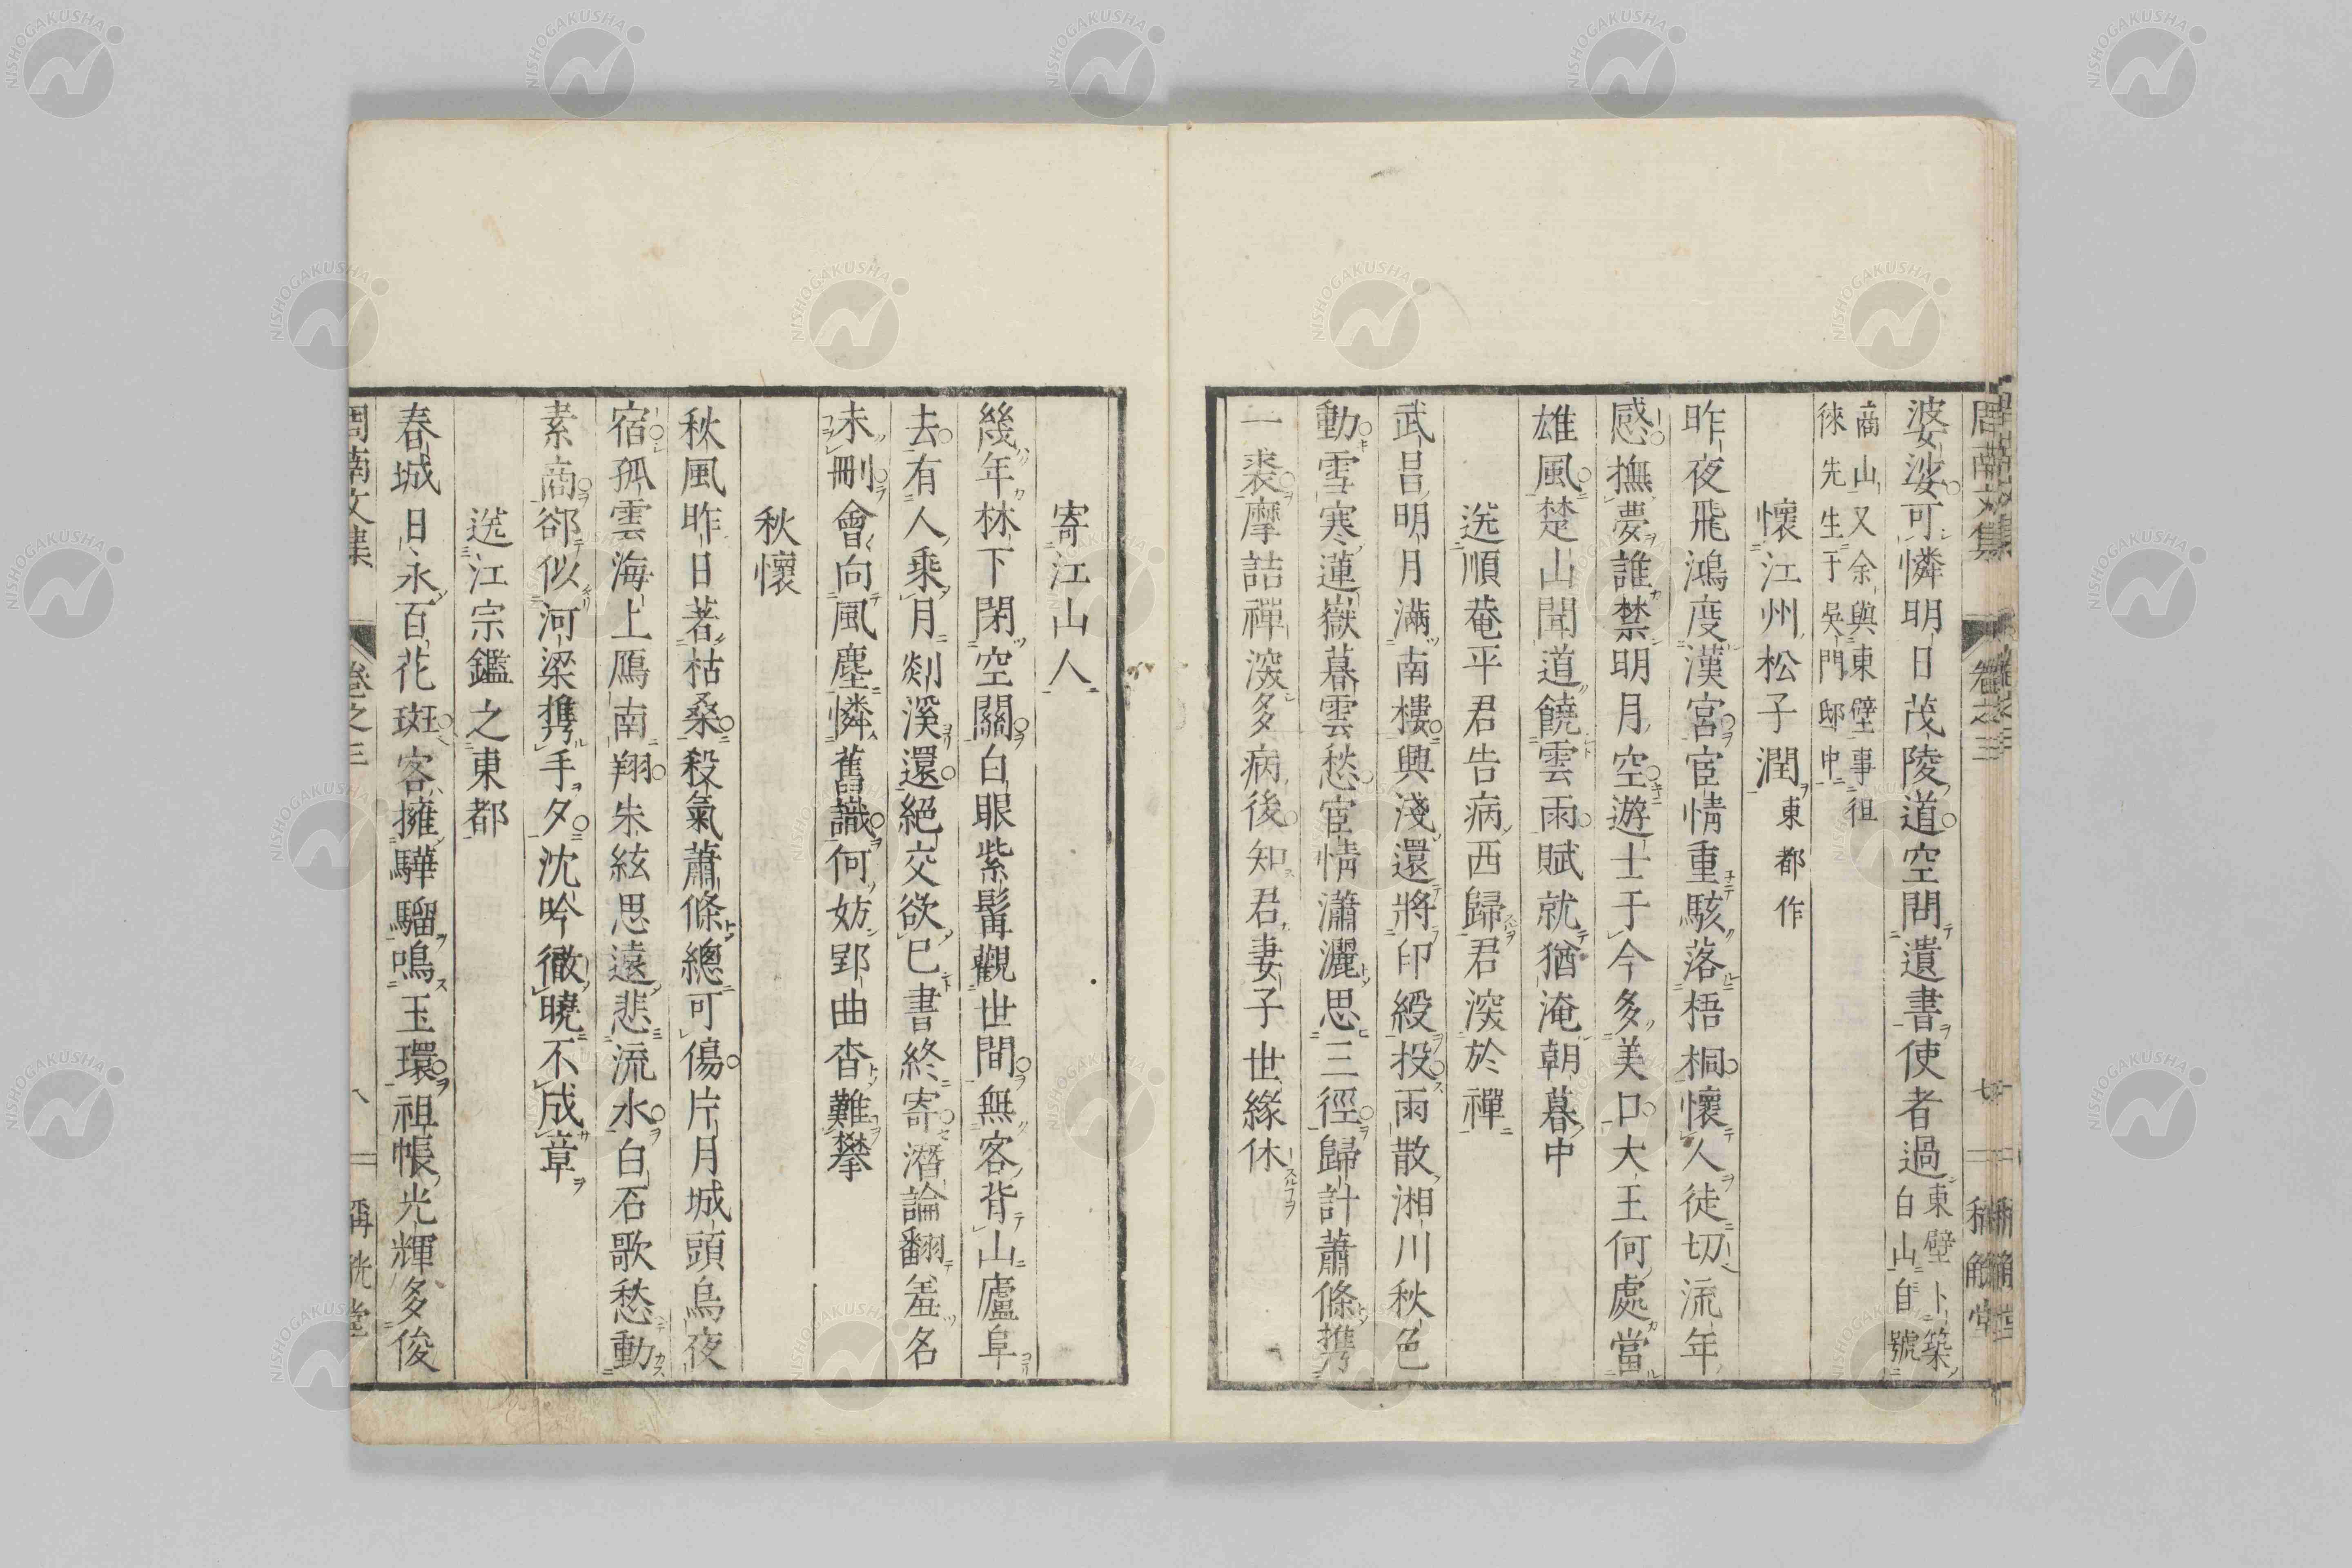 婆娑可憐明日茂陵道空問遺書使者過東壁卜築
白山自號
商山又余與東壁事徂
徠先生于吳門邸中
懷江州松子潤東都作
昨夜飛鴻度漢宮宦情重駭落梧桐懷人徒切流年
感撫夢誰禁明月空遊士于今多美口大王何處當
雄風楚山聞道饒雲雨賦就猶淹朝暮中
送順菴平君告病西歸君深於禪
武昌明月滿南樓興淺還將印綬投雨散湘川秋色
動雪寒蓮嶽暮雲愁宦情瀟灑思三徑歸計蕭條携
一裘摩詰禪深多病後知君妻子世緣休
寄江山人
幾年林下閉空關白眼紫髯觀世間無客背山廬阜
去有人乘月剡溪還絕交欲已書終寄潛論翻羞名
未刪會向風塵憐舊識何妨郢曲杳難攀
秋懷
秋風昨日著枯桑殺氣蕭條總可傷片月城頭烏夜
宿孤雲海上鴈南翔朱絃思遠悲流水白石歌愁動
素商郤似河梁携手夕沈吟徹曉不成章
送江宗鑑之東都
春城日永百花斑客擁驊騮鳴玉環祖帳光輝多俊
周南文集 卷之三 八 稱觥堂